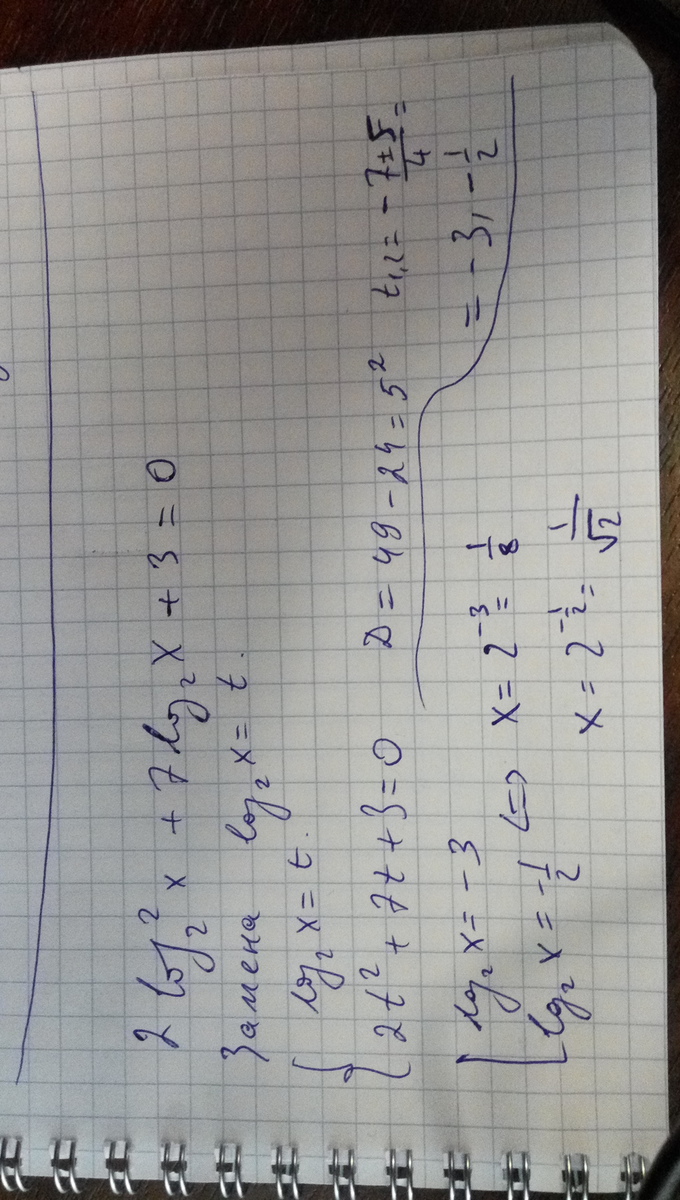 2 log₂² x + 7 log₂ x + 3 = 0
Замена log₂ x = t.
{ log₂ x = t.
2t² + 7t + 3 = 0 D = 49 - 24 = 5² t₁,₂ = -7±5/4 =
= -3, -1/2
[ log₂ x = -3 ⇔ x = 2⁻³ = 1/8
log₂ x = -1/2 x = 2^(-1/2) = 1/√2